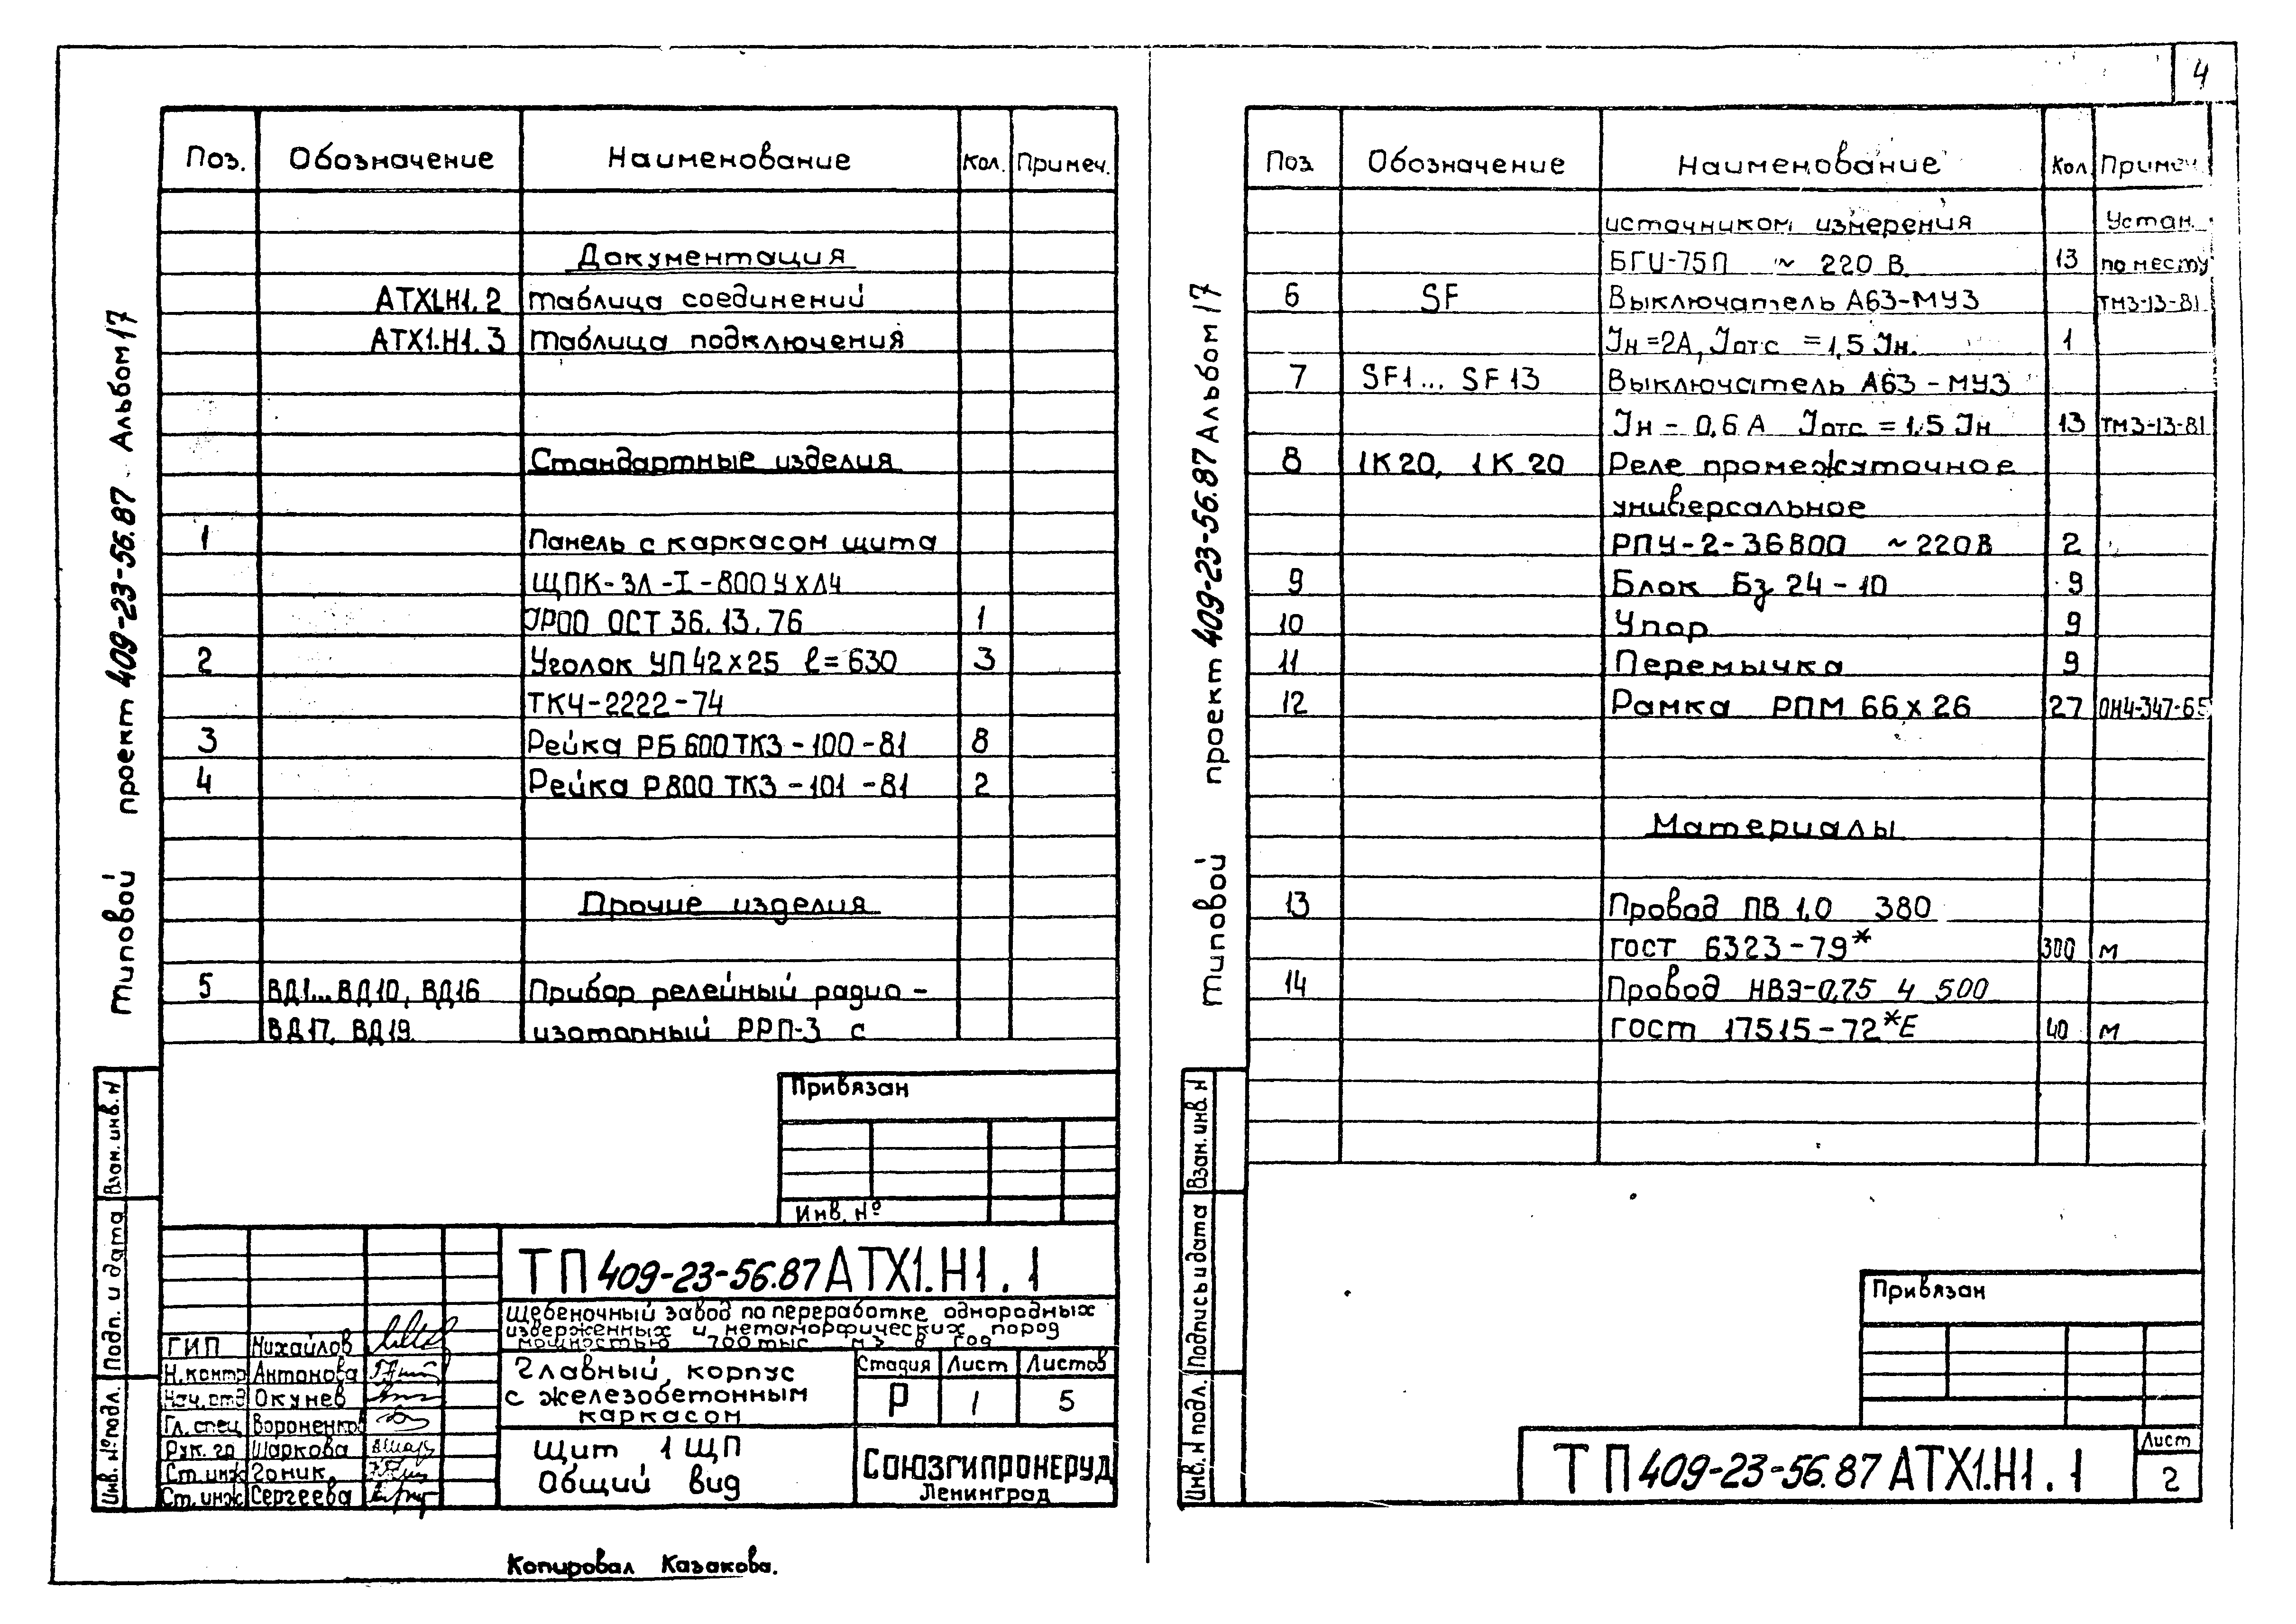 4
Типовой проект 409-23-56.87 Альбом 17
Поз. Обозначение Наименование Кол. Примеч.
Документация
АТХ1.Н1.2 Таблица соединений
АТХ1.Н1.3 Таблица подключения
Стандартные изделия
1 Панель с каркасом щита
ЩПК-3Л-I-800УХЛ4
IР00 ОСТ 36.13.76 1
2 Уголок УП42х25 ℓ=630 3
ТК4-2222-74
3 Рейка РБ600ТК3-100-81 8
4 Рейка Р800 ТК3-101-81 2
Прочие изделия
5 ВД1...ВД10, ВД16 Прибор релейный радио-
ВД17, ВД19. изотопный РРП-3 с
Привязан
Инв. №
ТП 409-23-56.87 АТХ1.Н1.1
Щебеночный завод по переработке однородных
изверженных и метаморфических пород
мощностью 700тыс м3 в год
ГИП Михайлов
Н.контр Антонова
Нач.отд Окунев
Гл. спец Вороненков
Рук. гр Шаркова
Ст.инж Гоник
Ст.инж Сергеева
Главный корпус
с железобетонным
каркасом
Стадия Лист Листов
Р 1 5
Щит 1ЩП
Общий вид
СОЮЗГИПРОНЕРУД
Ленинград
Инв. № подл. Подп. и дата Взам. инв. №
Копировал Казакова.
Типовой проект 409-23-56.87 Альбом 17
Поз Обозначение Наименование Кол Примеч.
источником измерения Устан.
БГИ-75П ~ 220 В. 13 по месту
6 SF Выключатель А63-МУ3 ТМ3-13-81
Iн=2А, Iотс =1,5 Iн. 1
7 SF1... SF13 Выключатель А63-МУ3
Iн - 0,6 А Iотс = 1,5 Iн 13 ТМ3-13-81
8 1К20, 1К20 Реле промежуточное
универсальное
РПУ-2-36800 ~220В 2
9 Блок Бз 24-10 9
10 Упор 9
11 Перемычка 9
12 Рамка РПМ 66х26 27 ОН4-347-65
Материалы
13 Провод ПВ 1,0 380
ГОСТ 6323-79* 300 м
14 Провод НВЭ-0,75 4 500
ГОСТ 17515-72*Е 40 м
Привязан
ТП 409-23-56.87 АТХ1.Н1.1
Лист
2
Инв. № подл. Подпись и дата Взам. инв. №